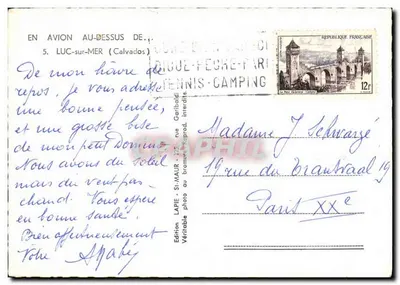 EN AVION AU-DESSUS DE...
5. LUC-sur-MER (Calvados)
De mon havre de
repos, je vous adresse
une bonne pensée,
et une grosse bise
de mon petit Domino
Nous avons du soleil
mais du vent pas
chaud. Vous espère
en bonne santé.
Bien affectueusement
Votre
DIGUE - PECHE - PAR
TENNIS - CAMPING
REPUBLIQUE FRANÇAISE
12F
Edition LAPIE - St-MAUR - rue Garibaldi
Véritable photo au bromure - Reprod. interdite
Madame J Schwarzé
19 rue du Transvaal 19
Paris XXe